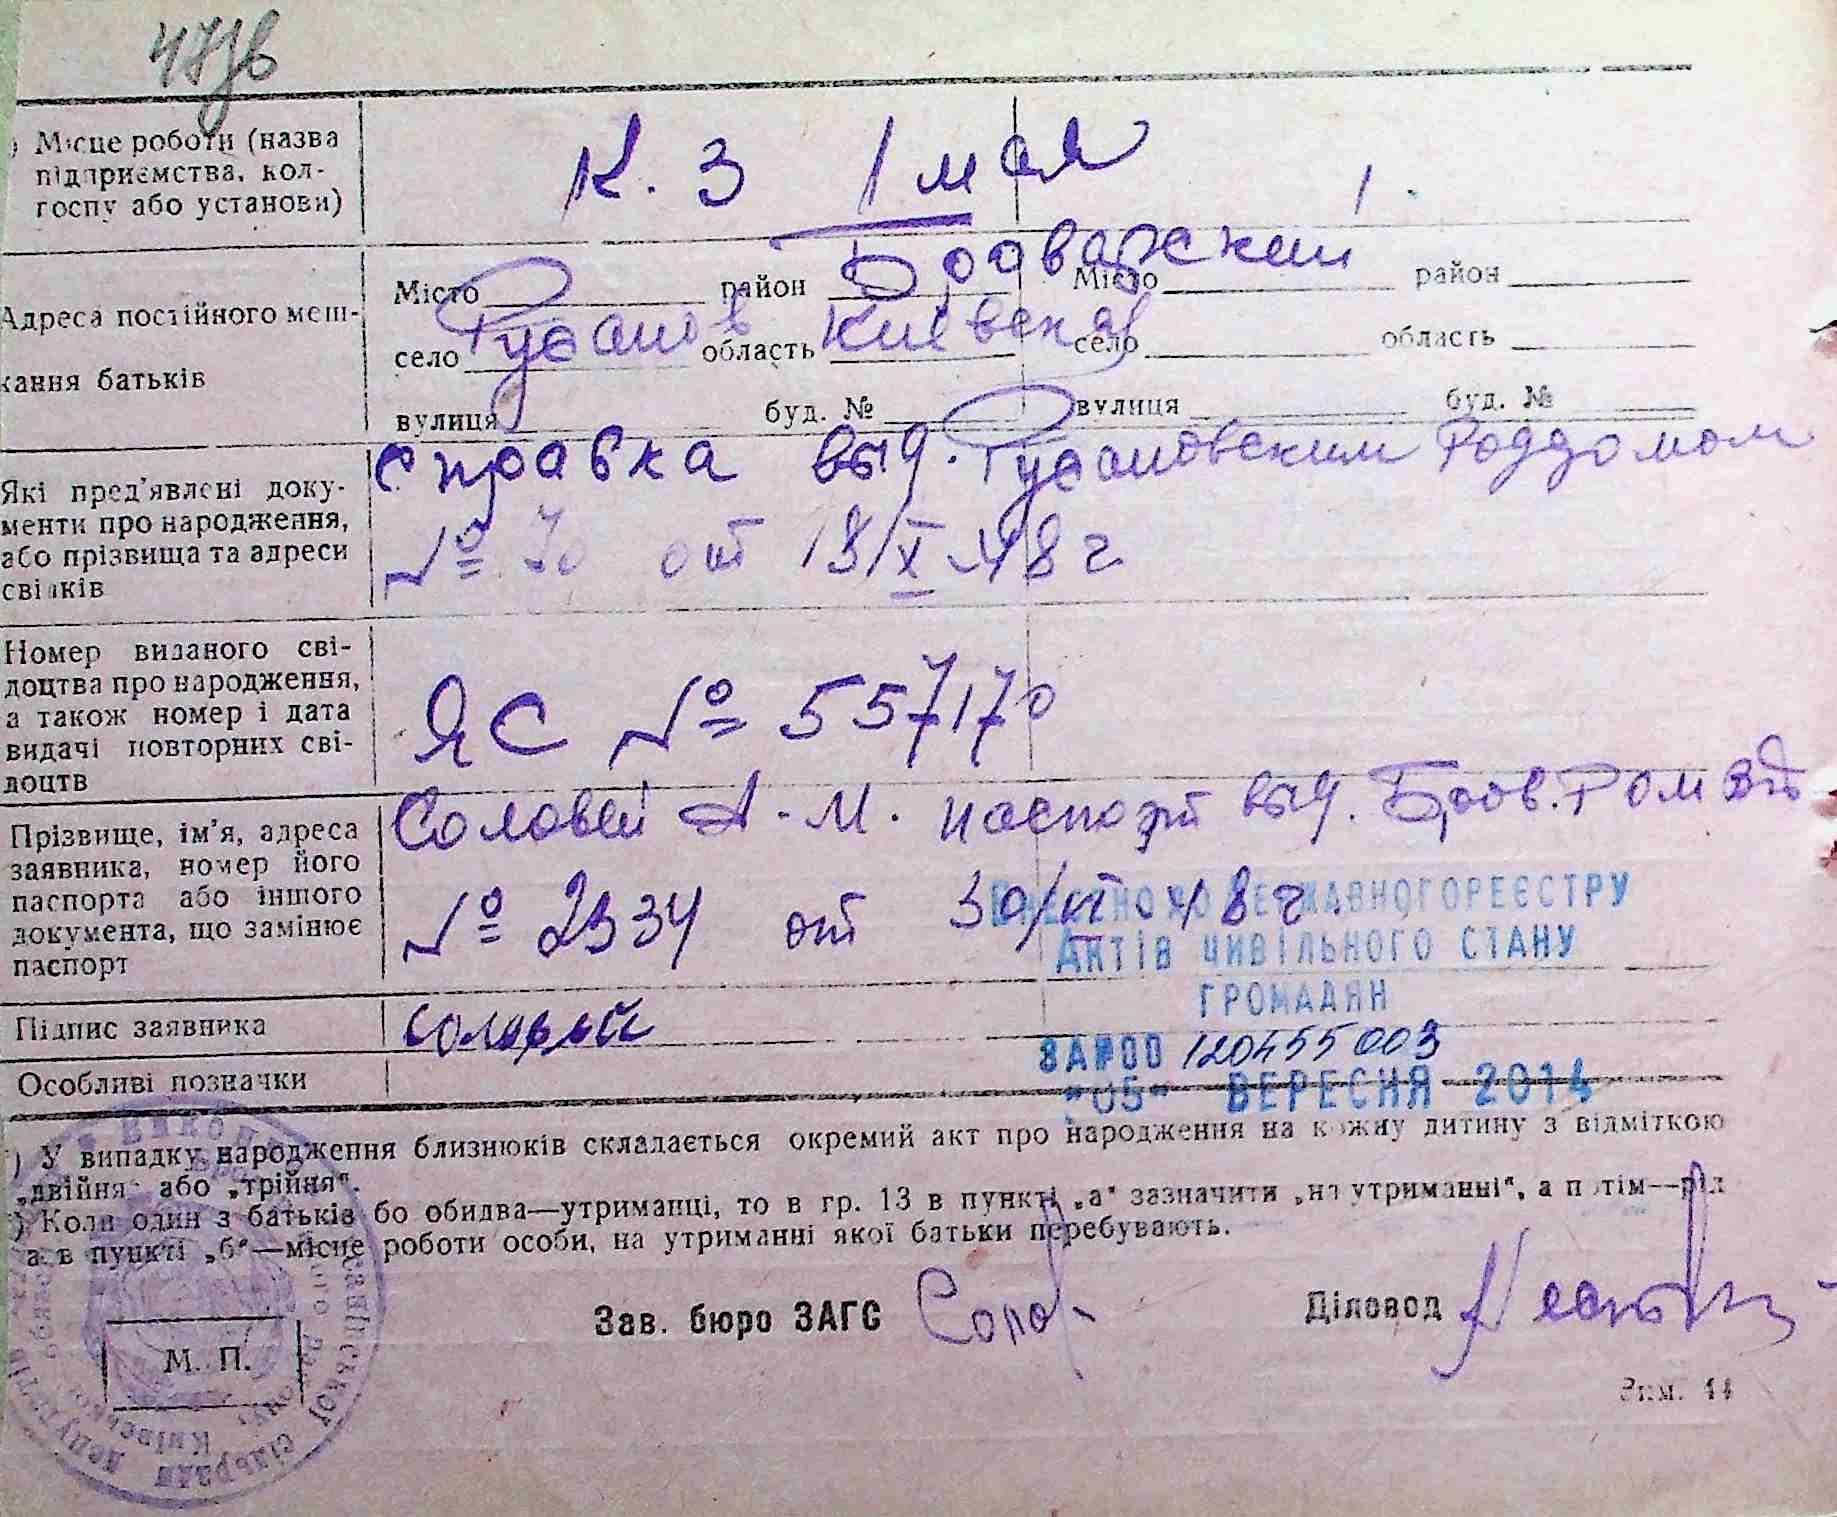 47зв
Місце роботи (назва
підприємства, кол-
госпу або установи)
К. З 1 мая
Адреса постійного меш-
кання батьків
Місто район Броварский Місто район
село Русанов область Киевская село область
вулиця буд. № вулиця буд. №
Які пред'явлені доку-
менти про народження,
або прізвища та адреси
свідків
справка выд. Русановским Роддомом
№ 70 от 18/X 48 г
Номер виданого сві-
доцтва про народження,
а також номер і дата
видачі повторних сві-
доцтв
ЯС № 557170
Прізвище, ім'я, адреса
заявника, номер його
паспорта або іншого
документа, що замінює
паспорт
Соловей А. М. паспорт выд. Бров. РОМ
№ 2334 от 30/VI 48 г.
ВНЕСЕНО ДО ДЕРЖАВНОГО РЕЄСТРУ
АКТІВ ЦИВІЛЬНОГО СТАНУ
ГРОМАДЯН
ЗА №00 120455003
"05" ВЕРЕСНЯ 2014
Підпис заявника Соловей
Особливі позначки
) У випадку народження близнюків складається окремий акт про народження на кожну дитину з відміткою
„двійня“ або „трійня“.
) Коли один з батьків бо обидва—утриманці, то в гр. 13 в пункті „а“ зазначити „на утриманні“, а потім—під
а в пункті „б“—місце роботи особи, на утриманні якої батьки перебувають.
Зав. бюро ЗАГС
Діловод
М. П.
Зим. 14